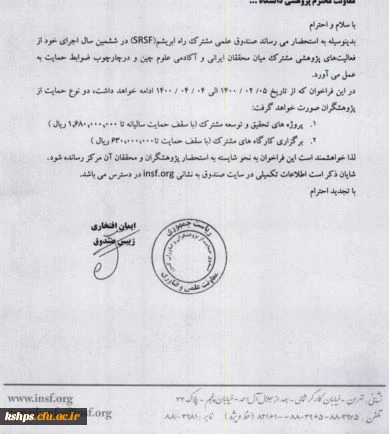 معاونت محترم پژوهشی دانشگاه ...
با سلام و احترام
بدینوسیله به استحضار می رساند صندوق علمی مشترک راه ابریشم(SRSF) در ششمین سال اجرای خود از
فعالیت‌های پژوهشی مشترک میان محققان ایرانی و آکادمی علوم چین و درچارچوب ضوابط حمایت به
عمل می آورد.
در این فراخوان که از تاریخ ۰۵ / ۰۲ / ۱۴۰۰ الی ۰۴ / ۰۴ / ۱۴۰۰ ادامه خواهد داشت، دو نوع حمایت از
پژوهشگران صورت خواهد گرفت:
۱. پروژه های تحقیق و توسعه مشترک (با سقف حمایت سالیانه تا ۱,۶۸۰,۰۰۰,۰۰۰ ریال )
۲. برگزاری کارگاه های مشترک (با سقف حمایت تا ۶۳۰,۰۰۰,۰۰۰ ریال )
لذا خواهشمند است این فراخوان به نحو شایسته به استحضار پژوهشگران و محققان آن مرکز رسانده شود.
شایان ذکر است اطلاعات تکمیلی در سایت صندوق به نشانی insf.org در دسترس می باشد.
با تجدید احترام
ایمان افتخاری
رییس صندوق
ریاست جمهوری
معاونت علمی و فناوری
نشانی: تهران - خیابان کارگر شمالی - بعد از جلال آل احمد - خیابان پنجم - پلاک ۳۳
www.insf.org
تلفن: ۸۸۰۳۹۷۵-۸۸۰۳۹۶۵-۸۲۱۶۱۰۰۰ (خط ویژه) نمابر: ۸۸۰۰۳۹۸۱
kshps.cfu.ac.ir